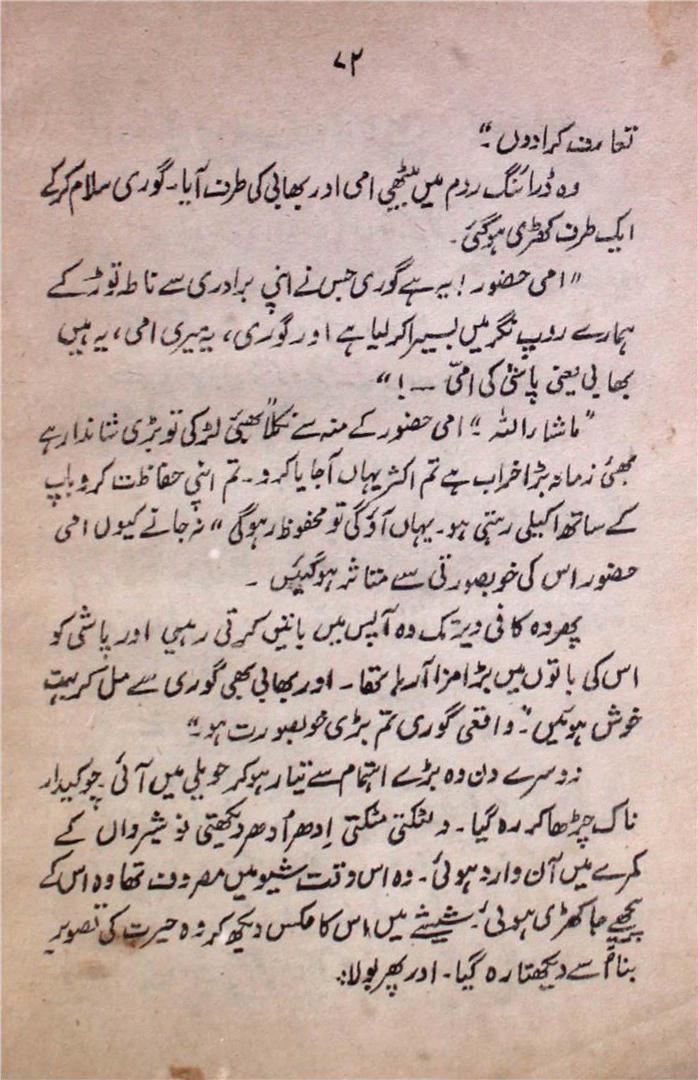 ۷۲
تعارف کرادوں ۔"
وہ ڈرائنگ روم میں بیٹھی امی اور بھابی کی طرف آیا۔ گوری سلام کرکے
ایک طرف کھڑی ہوگئی۔
"امی حضور! یہ ہے گوری جس نے اپنی برادری سے ناطہ توڑ کے
ہمارے روپ نگر میں بسیرا کر لیا ہے اور گوری، یہ میری امی، یہ ہیں
بھابی یعنی پاشی کی امّی ــ !"
"ماشاراللہ ۔" امی حضور کے منہ سے نکلا "بھئی لڑکی تو بڑی شاندار ہے
بھئی زمانہ بڑا خراب ہے تم اکثر یہاں آجایا کرو۔ تم اپنی حفاظت کرو باپ
کے ساتھ اکیلی رہتی ہو۔ یہاں آؤگی تو محفوظ رہوگی" نہ جانے کیوں امی
حضور اس کی خوبصورتی سے متاثر ہوگئیں ۔
پھر وہ کافی دیر تک وہ آپس میں باتیں کرتی رہیں اور پاشی کو
اس کی باتوں میں بڑا مزا آرہا تھا۔ اور بھابی بھی گوری سے مل کر بہت
خوش ہوئیں۔ "واقعی گوری تم بڑی خوبصورت ہو۔"
دوسرے دن وہ بڑے اہتمام سے تیار ہوکر حویلی میں آئی چوکیدار
ناک چڑھا کر رہ گیا۔ وہ لٹکتی مٹکتی اِدھر اُدھر دیکھتی نوشیرواں کے
کمرے میں آن وارد ہوئی۔ وہ اس وقت شیو میں مصروف تھا وہ اس کے
پیچھے جا کھڑی ہوئی۔ شیشے میں اس کا عکس دیکھ کر وہ حیرت کی تصویر
بنا اُسے دیکھتا رہ گیا۔ اور پھر بولا: